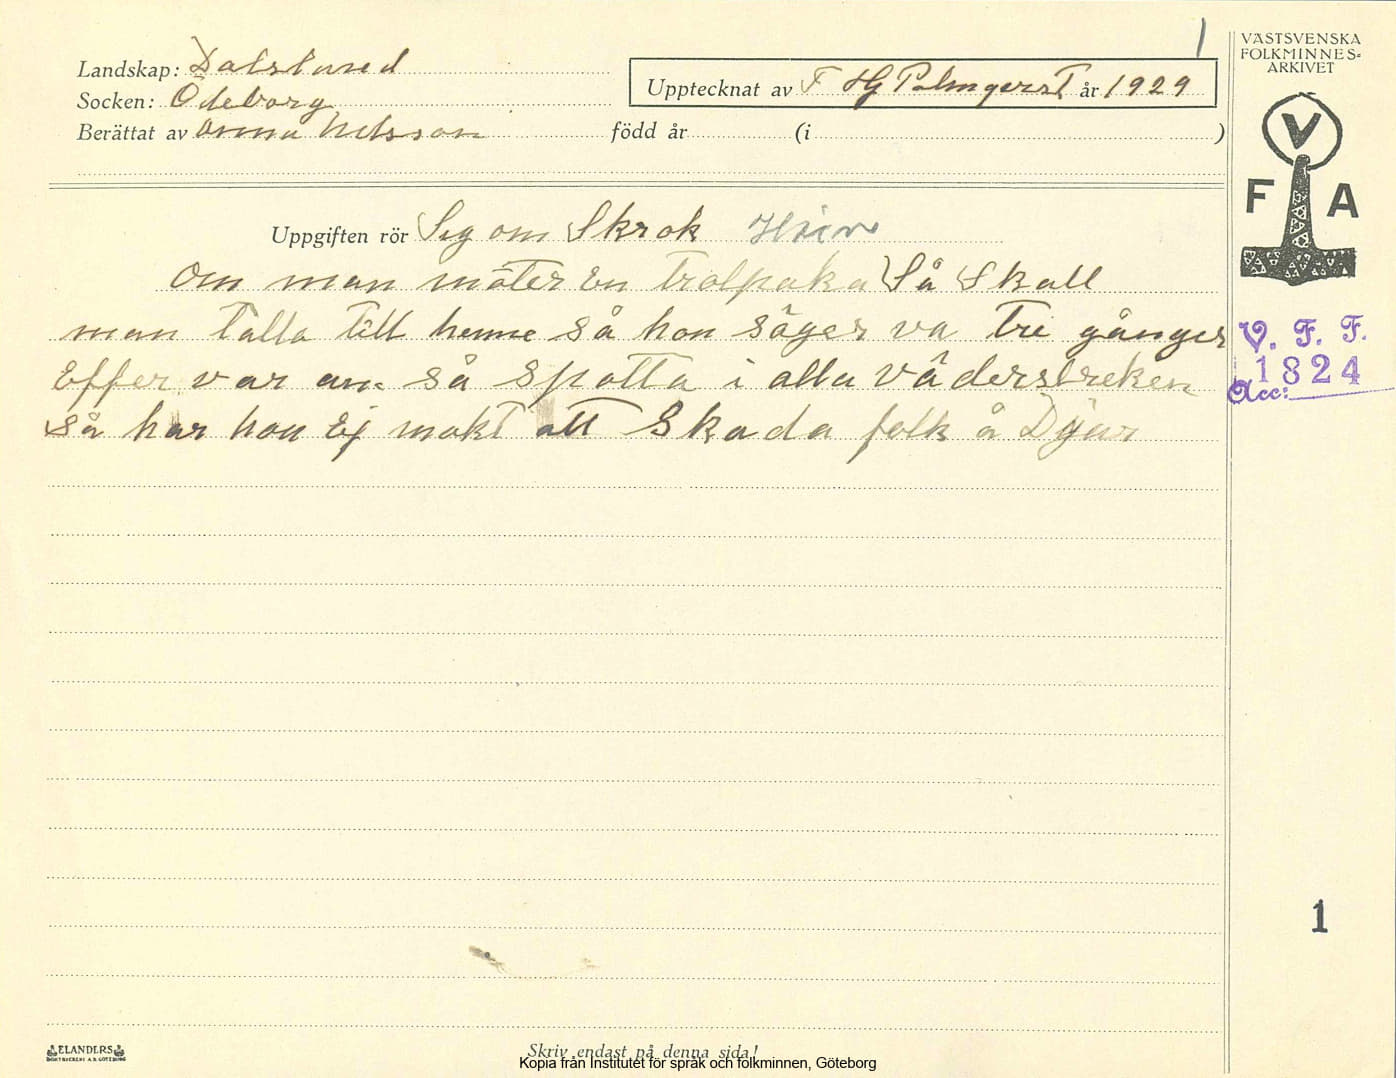 1
Landskap: Dalsland
Socken: Ödeborg
Berättat av Anna Nelsson
Upptecknat av F Hj Palmqvist år 1929
född år (i )
Uppgiften rör Seg om Skrok
Om man möter en trolpaka Så Skall
man talla till henne så hon säger va tre gånger
Effer var an. så spotta i alla väderstreken
så har hon Ej makt att Skada folk å Djur
VÄSTSVENSKA
FOLKMINNES-
ARKIVET
V
F A
V. F. F.
1824
Acc:
1
ELANDERS
BOKTRYCKERI A.B. GÖTEBORG
Skriv endast på denna sida!
Kopia från Institutet för språk och folkminnen, Göteborg